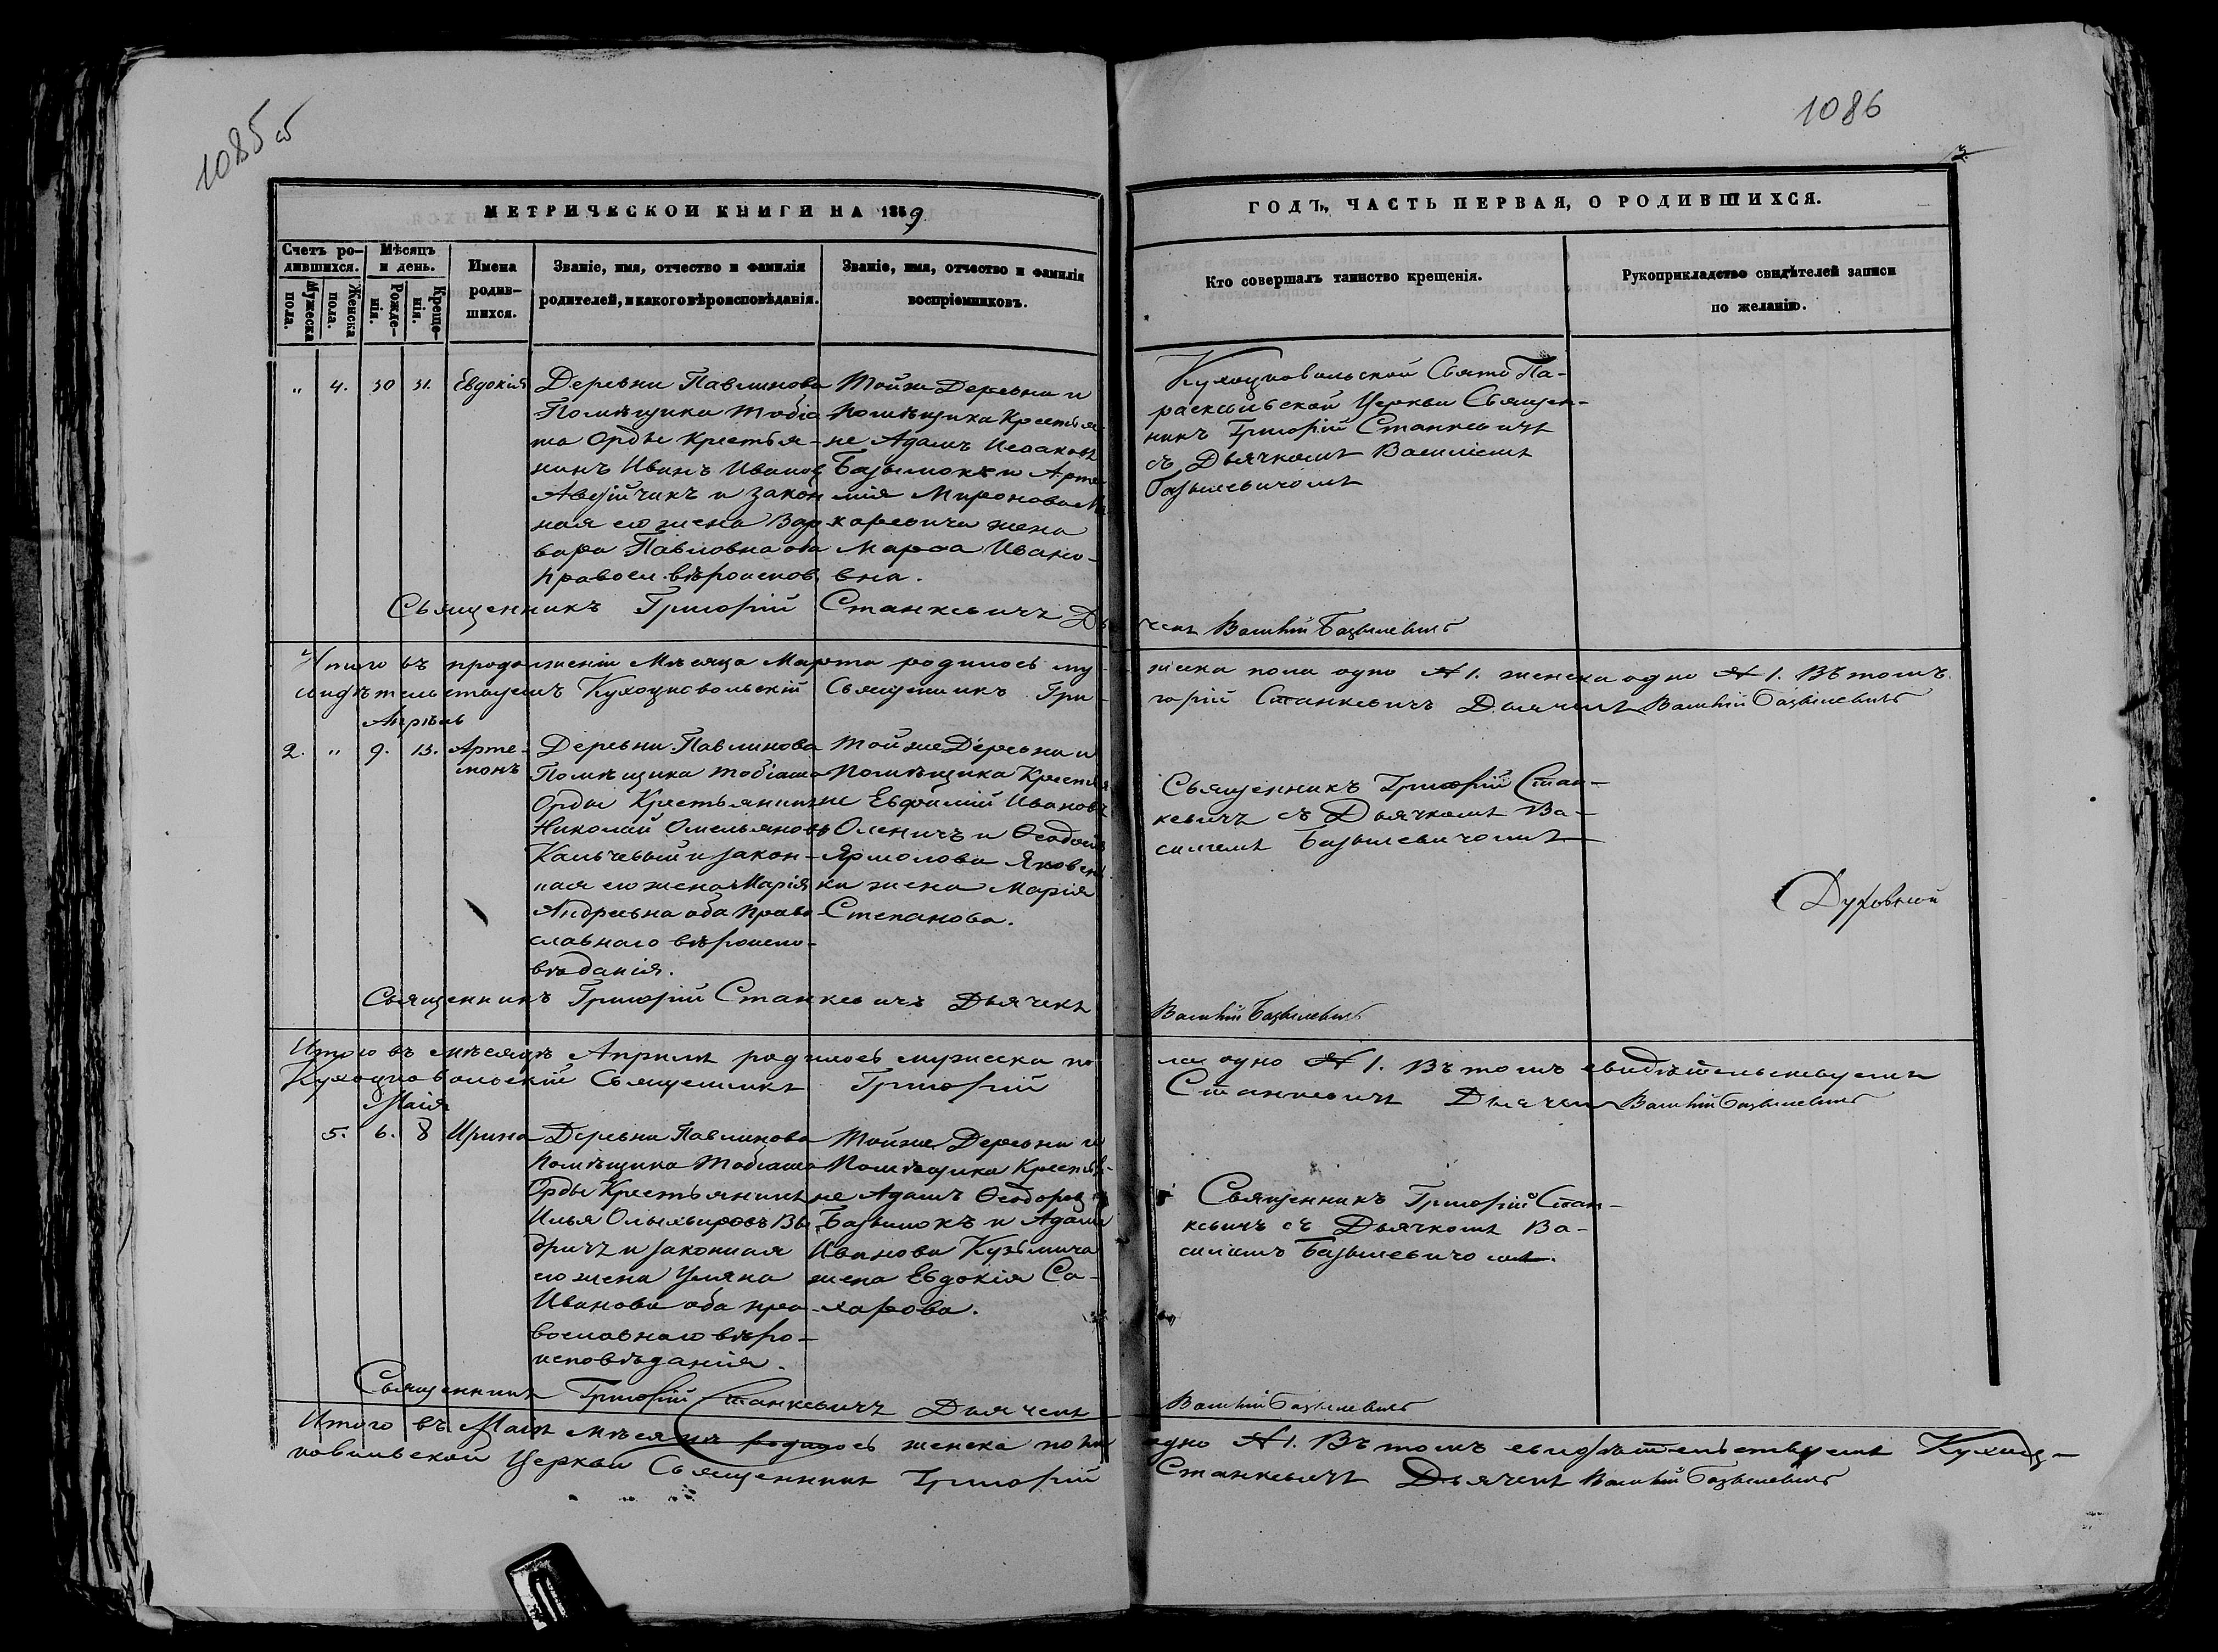 1085 об
1086
3.
МЕТРИЧЕСКОЙ КНИГИ НА 1859
ГОДЪ, ЧАСТЬ ПЕРВАЯ, О РОДИВШИХСЯ.
Счетъ ро-
дившихся.
Мужеска
пола.
Женска
пола.
Мѣсяцъ
и день.
Рожде-
нія.
Креще-
нія.
Имена
родив-
шихся.
Званіе, имя, отчество и фамилія
родителей, и какого вѣроисповѣданія.
Званіе, имя, отчество и фамилія
воспріемниковъ.
Кто совершалъ таинство крещенія.
Рукоприкладство свидѣтелей записи
по желанію.
" 4. 30 31. Евдокія
Деревни Павлинова
Помѣщика Тобіа-
ша Орды крестья-
нинъ Иванъ Иванов
и закон
ная его жена Вар
вара Павловна оба
правосл. вѣроиспов.
Тойже Деревни и
Помѣщика Крестья-
не Адамъ Исааковъ
Базылюкъ и Арте
мія Миронова Ма
каревича жена
Марѳа Ивано-
вна.
Кухоцковольской Свято Па-
раскевиевской Церкви Священ-
никъ Григорій Станкевичъ
съ Дьячкомъ Василіемъ
Базылевичомъ
Священникъ Григорій Станкевичъ Дь
чекъ Василій Базылевичъ
Итого въ продолженіи Мѣсяца Марта родилось му-
жеска пола одно № 1. женска одно № 1. Въ томъ
свидѣтельствуемъ Кухоцковольскій Священникъ Гри-
горій Станкевичъ Дьячекъ Василій Базылевичъ
Апрѣль
2. " 9. 13. Арте-
монъ
Деревни Павлинова
Помѣщика Тобіаша
Орды Крестьянинъ
Николай Омельяновъ
и закон-
ная его жена Марія
Андреевна оба право-
славнаго вѣроиспо-
вѣданія.
Тойже Деревни и
Помѣщика Крестья
не Евфимій Ивановъ
Оленичъ и Ѳеодосія
Ярмолова
ки жена Марія
Степанова.
Священникъ Григорій Стан-
кевичъ съ Дьячкомъ Ва-
силіемъ Базылевичомъ
Духовной
Священникъ Григорій Станкевичъ Дьячекъ
Василій Базылевичъ
Итого въ мѣсяцѣ Апрѣлѣ родилось мужеска по-
ла одно № 1. Въ томъ свидѣтельствуемъ
Кухоцковольскій Священникъ Григорій
Станкевичъ Дьячекъ Василій Базылевичъ
Маія
5. 6. 8 Ирина
Деревни Павлинова
Помѣщика Тобіаша
Орды Крестьянинъ
Илья Вы
дричъ и законная
его жена Уляна
Иванова оба пра-
вославнаго вѣро-
исповѣданія.
Тойже Деревни и
Помѣщика Крестья-
не Адамъ Ѳеодоров
Базылюкъ и Адама
Иванова Кузьмича
жена Евдокія Са-
харова.
Священникъ Григорій Стан-
кевичъ съ Дьячкомъ Ва-
силіемъ Базылевичомъ.
Священникъ Григорій Станкевичъ Дьячекъ
Василій Базылевичъ
Итого въ Маѣ мѣсяцѣ родилось женска пола
одно № 1. Въ томъ свидѣтельствуемъ Кухоц-
ковольской Церкви Священникъ Григорій
Станкевичъ Дьячекъ Василій Базылевичъ